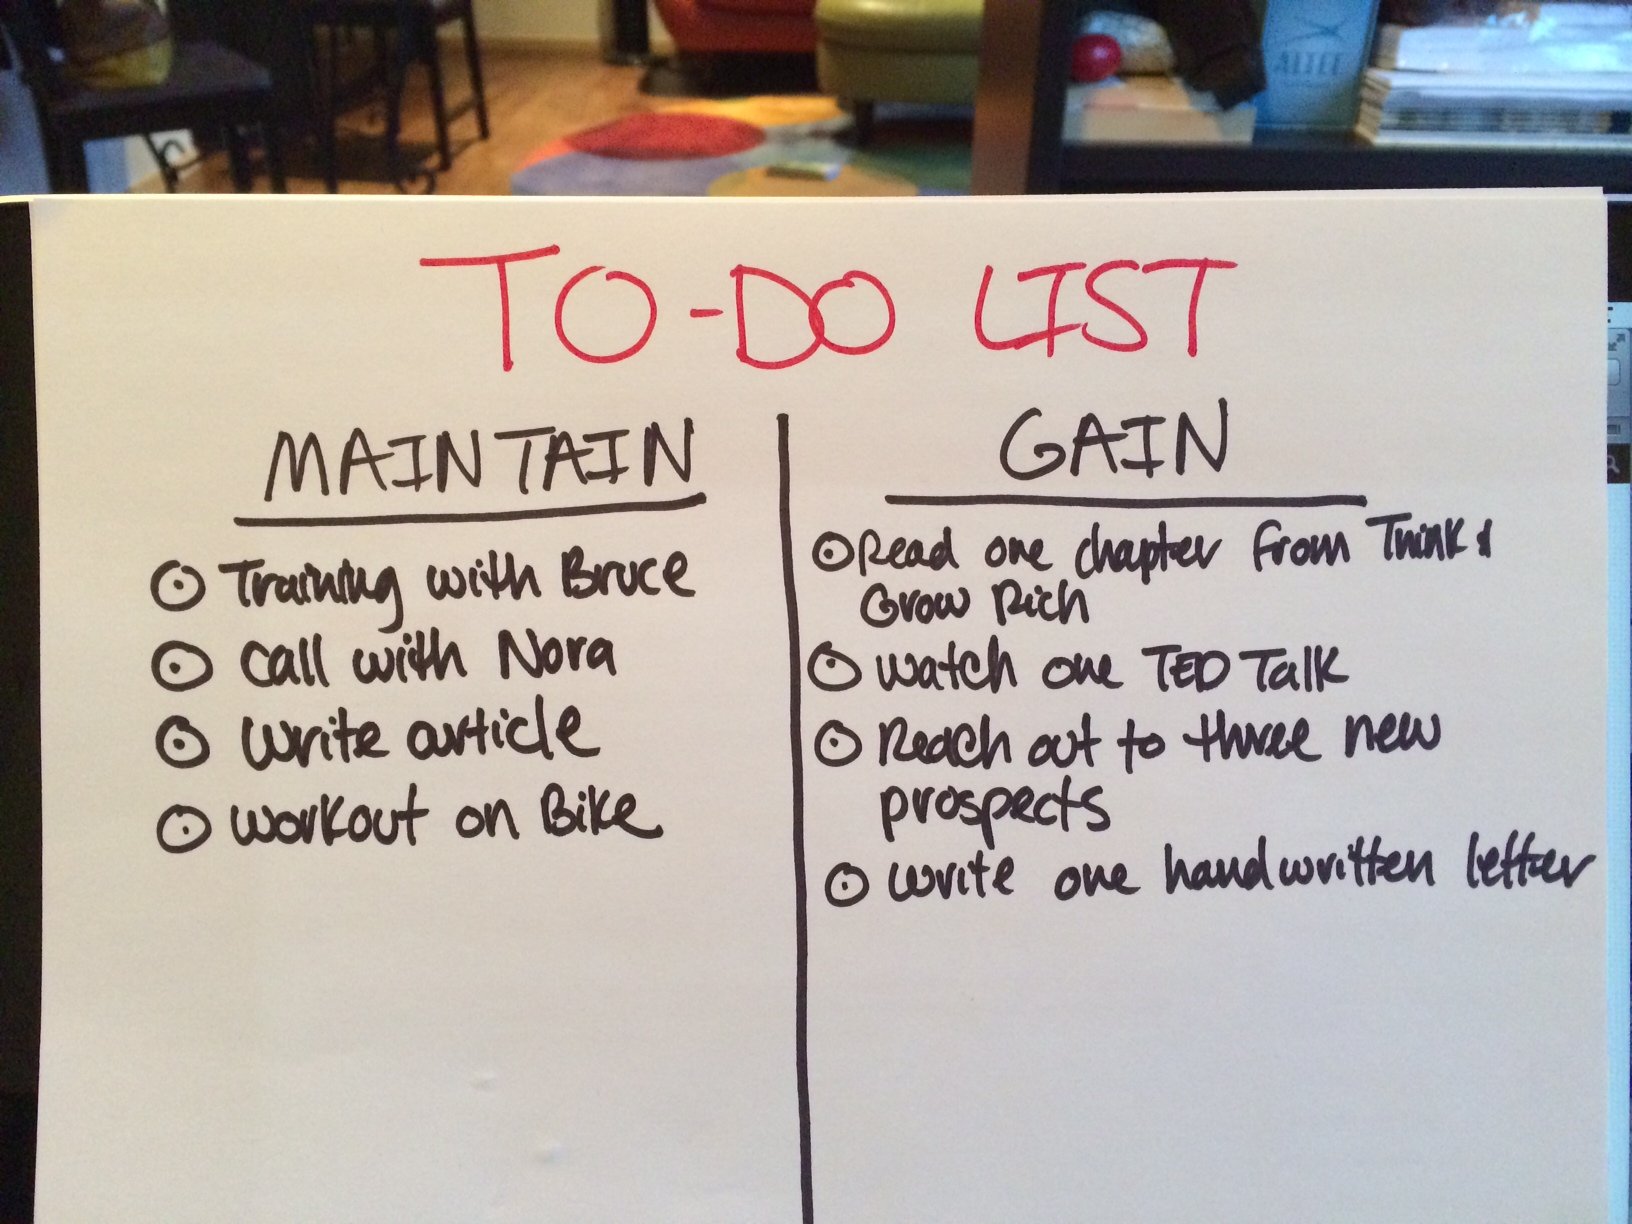 TO-DO LIST
MAINTAIN
Training with Bruce
Call with Nora
Write article
Workout on Bike
GAIN
Read one chapter from Think &
Grow Rich
Watch one TED Talk
Reach out to three new
prospects
Write one handwritten letter